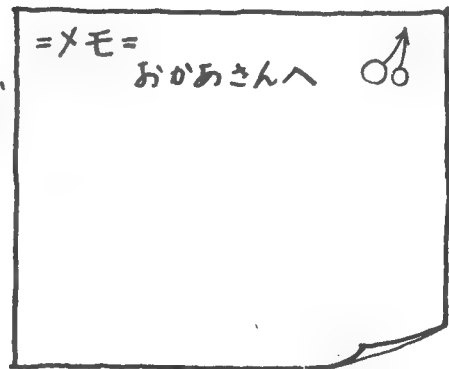 =メモ=
おかあさんへ